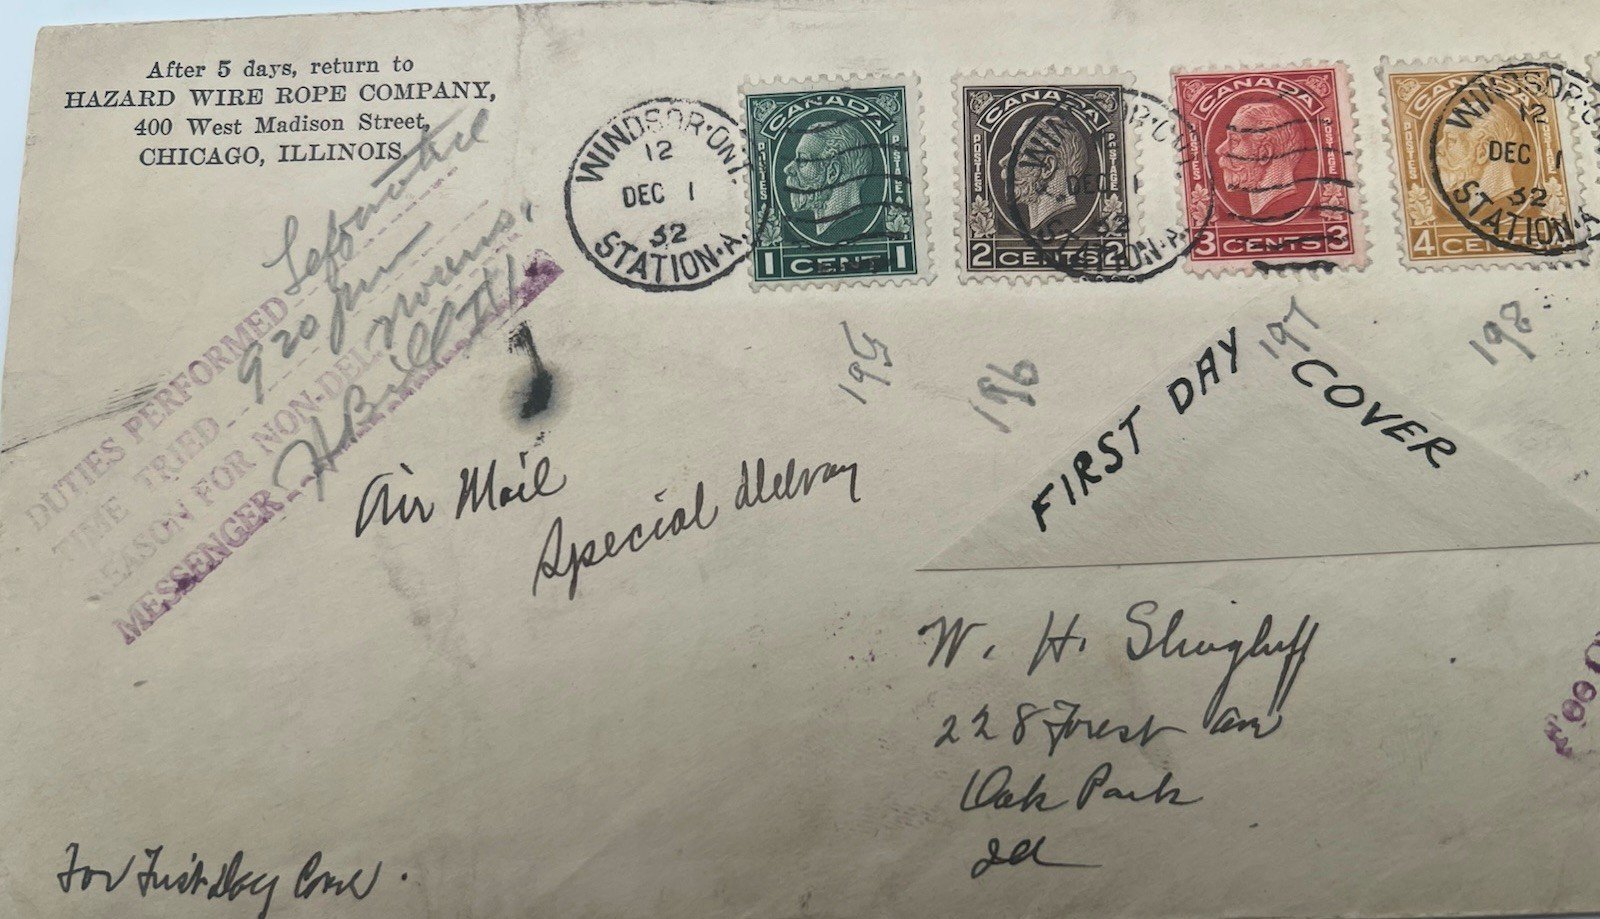 After 5 days, return to
HAZARD WIRE ROPE COMPANY,
400 West Madison Street,
CHICAGO, ILLINOIS.
WINDSOR·ONT.
12
DEC 1
32
STATION·A.
CANADA
POSTES POSTAGE
1 CENT 1
CANADA
POSTES POSTAGE
2 CENTS 2
CANADA
POSTES POSTAGE
3 CENTS 3
CANADA
POSTES POSTAGE
4 CENTS
WINDSOR·ONT.
DEC 1
32
STATION·A.
WINDSOR·O
12
DEC 1
32
STATION·A
195
196
197
198
DUTIES PERFORMED
TIME TRIED 9 20 pm
REASON FOR NON-DEL
MESSENGER
FIRST DAY COVER
Air Mail
Special
W. H. Slingluff
228 Forest Ave
Oak Park
Ill
For First Day Cover.